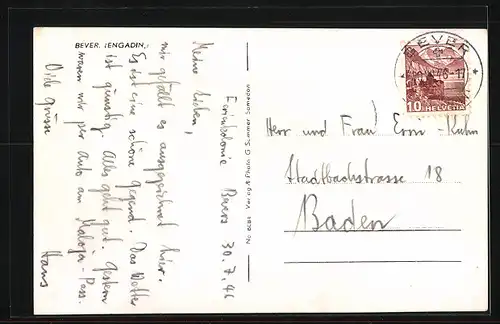 BEVER. (ENGADIN)
Ferienkolonie Bevers 30.7.46
Meine Lieben,
mir gefällt es ausgezeichnet hier.
Es ist eine schöne Gegend. Das Wetter
ist günstig. Alles geht gut. Gestern
waren wir per Auto am Maloja-Pass.
Viele Grüsse
Hans
Verlag & Photo O. Sommer Samedan
BEVER
10 HELVETIA
Herr und Frau
Stadtbachstrasse 18
Baden